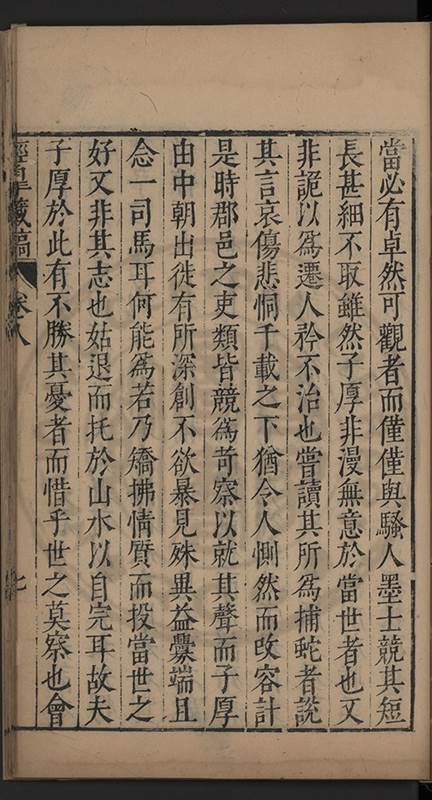 當必有卓然可觀者而僅僅與騷人墨士競其短
長甚細不取雖然子厚非漫無意於當世者也文
非詭以爲遷人矜不治也嘗讀其所爲捕蛇者說
其言哀傷悲恫千載之下猶令人惻然而改容計
是時郡邑之吏類皆競爲苛察以就其聲而子厚
由中朝出徙有所深創不欲暴見殊異益釁端且
念一司馬耳何能爲若乃矯拂情質而投當世之
好又非其志也姑退而托於山水以自完耳故夫
子厚於此有不勝其憂者而惜乎世之莫察也會
經臯藏稿 卷八 七